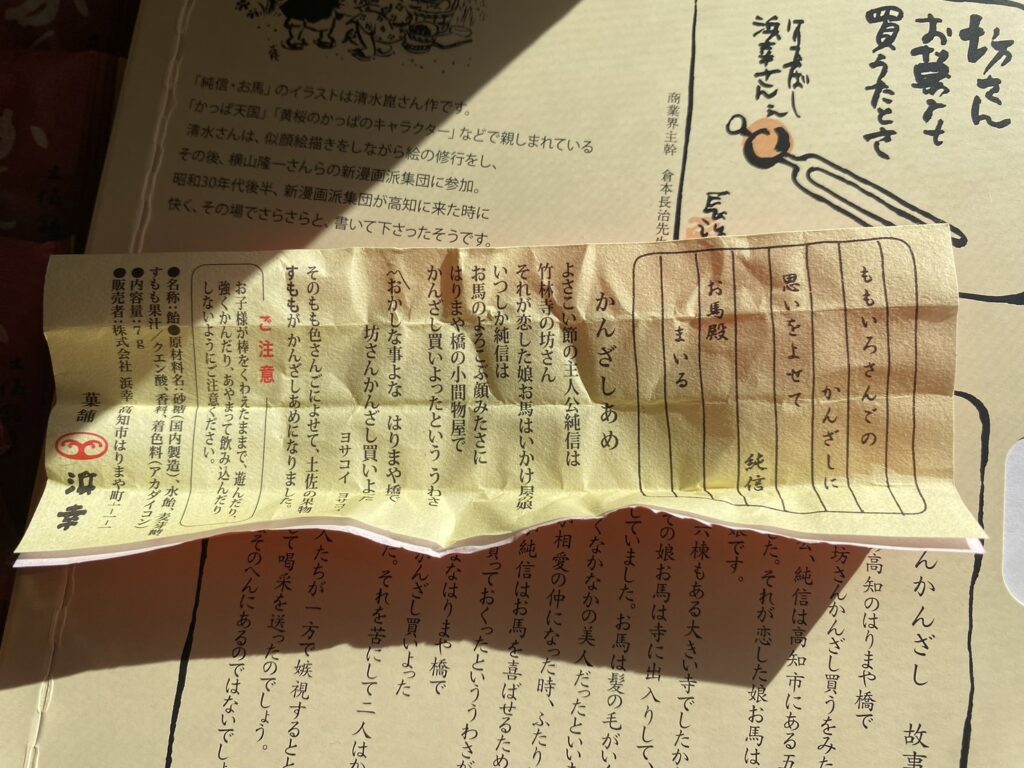 坊さん
お菓子も
買うたとさ
浜幸さんえ
商業界主幹 倉本長治先生
「純信・お馬」のイラストは清水崑さん作です。
「かっぱ天国」「黄桜のかっぱのキャラクター」などで親しまれている
清水さんは、似顔絵描きをしながら絵の修行をし、
その後、横山隆一さんらの新漫画派集団に参加。
昭和30年代後半、新漫画派集団が高知に来た時に
快く、その場でさらさらと、書いて下さったそうです。
ももいろさんごの
かんざしに
思いをよせて
純信
お馬殿
まいる
かんざしあめ
よさこい節の主人公純信は
竹林寺の坊さん
それが恋した娘お馬はいかけ屋の娘
いつしか純信は
お馬のよろこぶ顔みたさに
はりまや橋の小間物屋で
かんざし買いよったという うわさ
〽おかしな事よな はりまや橋で
坊さんかんざし買いよた
ヨサコイ ヨサコイ
そのもも色さんごによせて、土佐の果物
すももが かんざしあめになりました。
ご注意
お子様が棒をくわえたままで、遊んだり、
強くかんだり、あやまって飲み込んだり
しないようにご注意ください。
●名称:飴●原材料名:砂糖(国内製造)、水飴、麦芽糖
すもも果汁/クエン酸、香料、着色料(アカダイコン)
●内容量:7g
●販売者:株式会社 浜幸 高知市はりまや町一-一-一
菓舗 浜幸
んかんざし 故事
高知のはりまや橋で
坊さんかんざし買うをみた
純信は高知市にある五
した。それが恋した娘お馬は
六棟もある大きい寺でしたか
の娘お馬は寺に出入りして、
していました。お馬は髪の毛がい
くてなかなかの美人だったといい
相愛の仲になった時、ふたり
純信はお馬を喜ばせるため
買っておくったといううわさが
なはりまや橋で
かんざし買いよった
た。それを苦にして二人はか
人たちが一方で嫉視すると
て喝采を送ったのでしょう。
そのへんにあるのではないでし